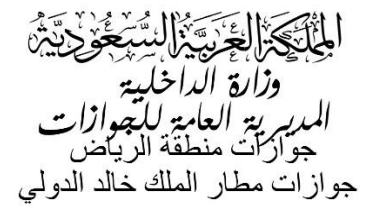 المملكة العربية السعودية
وزارة الداخلية
المديرية العامة للجوازات
جوازات منطقة الرياض
جوازات مطار الملك خالد الدولي